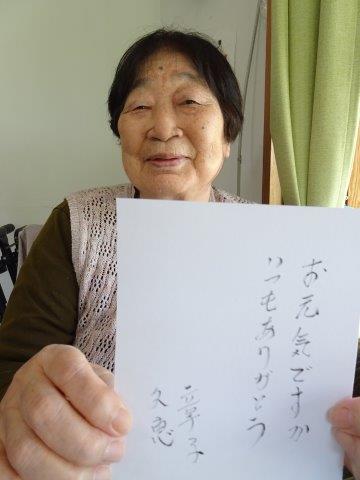 お元気ですか
いつもありがとう
章子
久恵